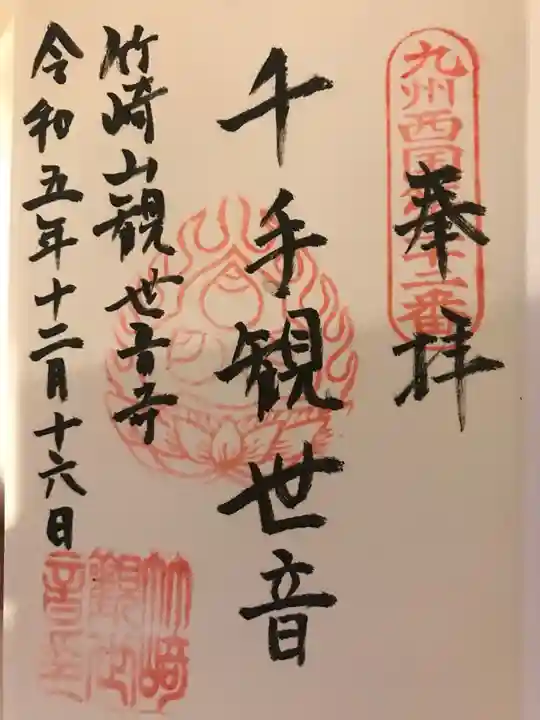 奉拝
九州西国第二十二番
千手観世音
竹崎山観世音寺
令和五年十二月十六日
竹崎
観世
音